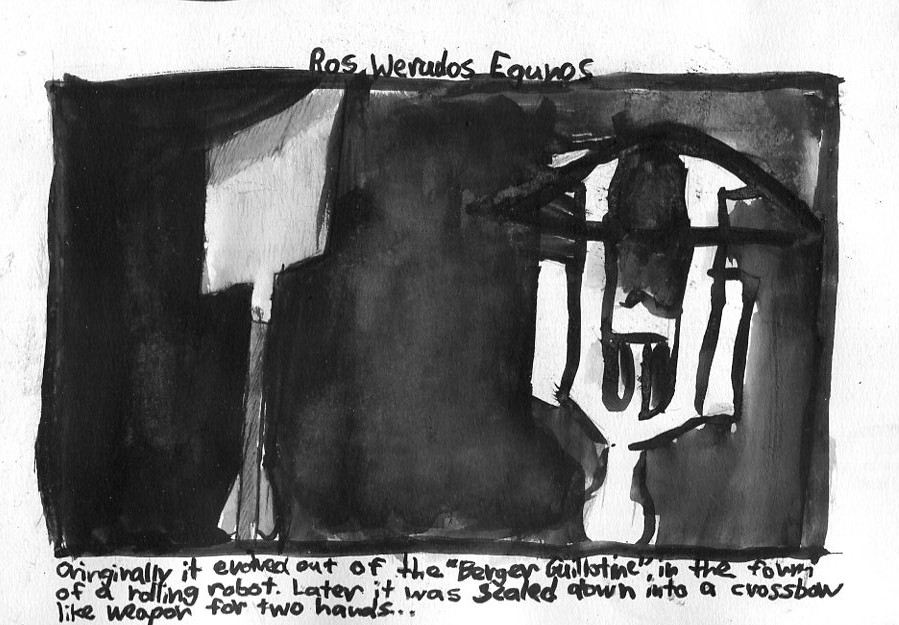 Ros Werudos Egunos
Oringinally it evolved out of the "Berger Guillotine", in the form
of a rolling robot. Later it was scaled down into a crossbow
like weapon for two hands...